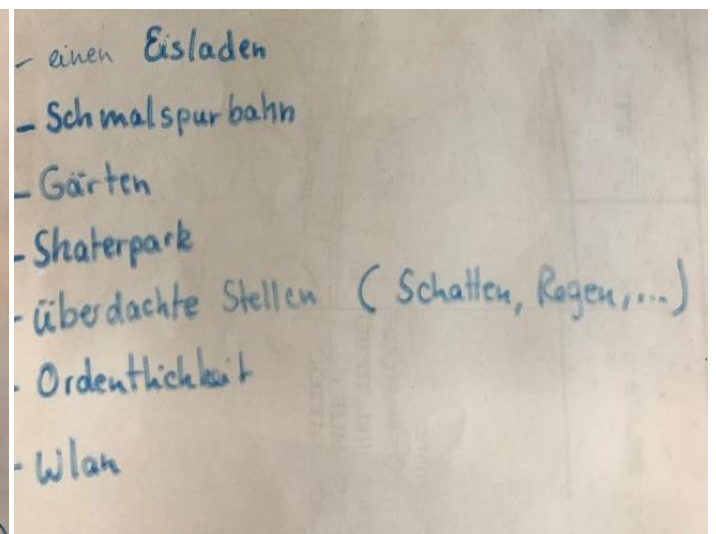 - einen Eisladen
- Schmalspurbahn
- Gärten
- Skaterpark
- überdachte Stellen (Schatten, Regen,...)
- Ordentlichkeit
- Wlan